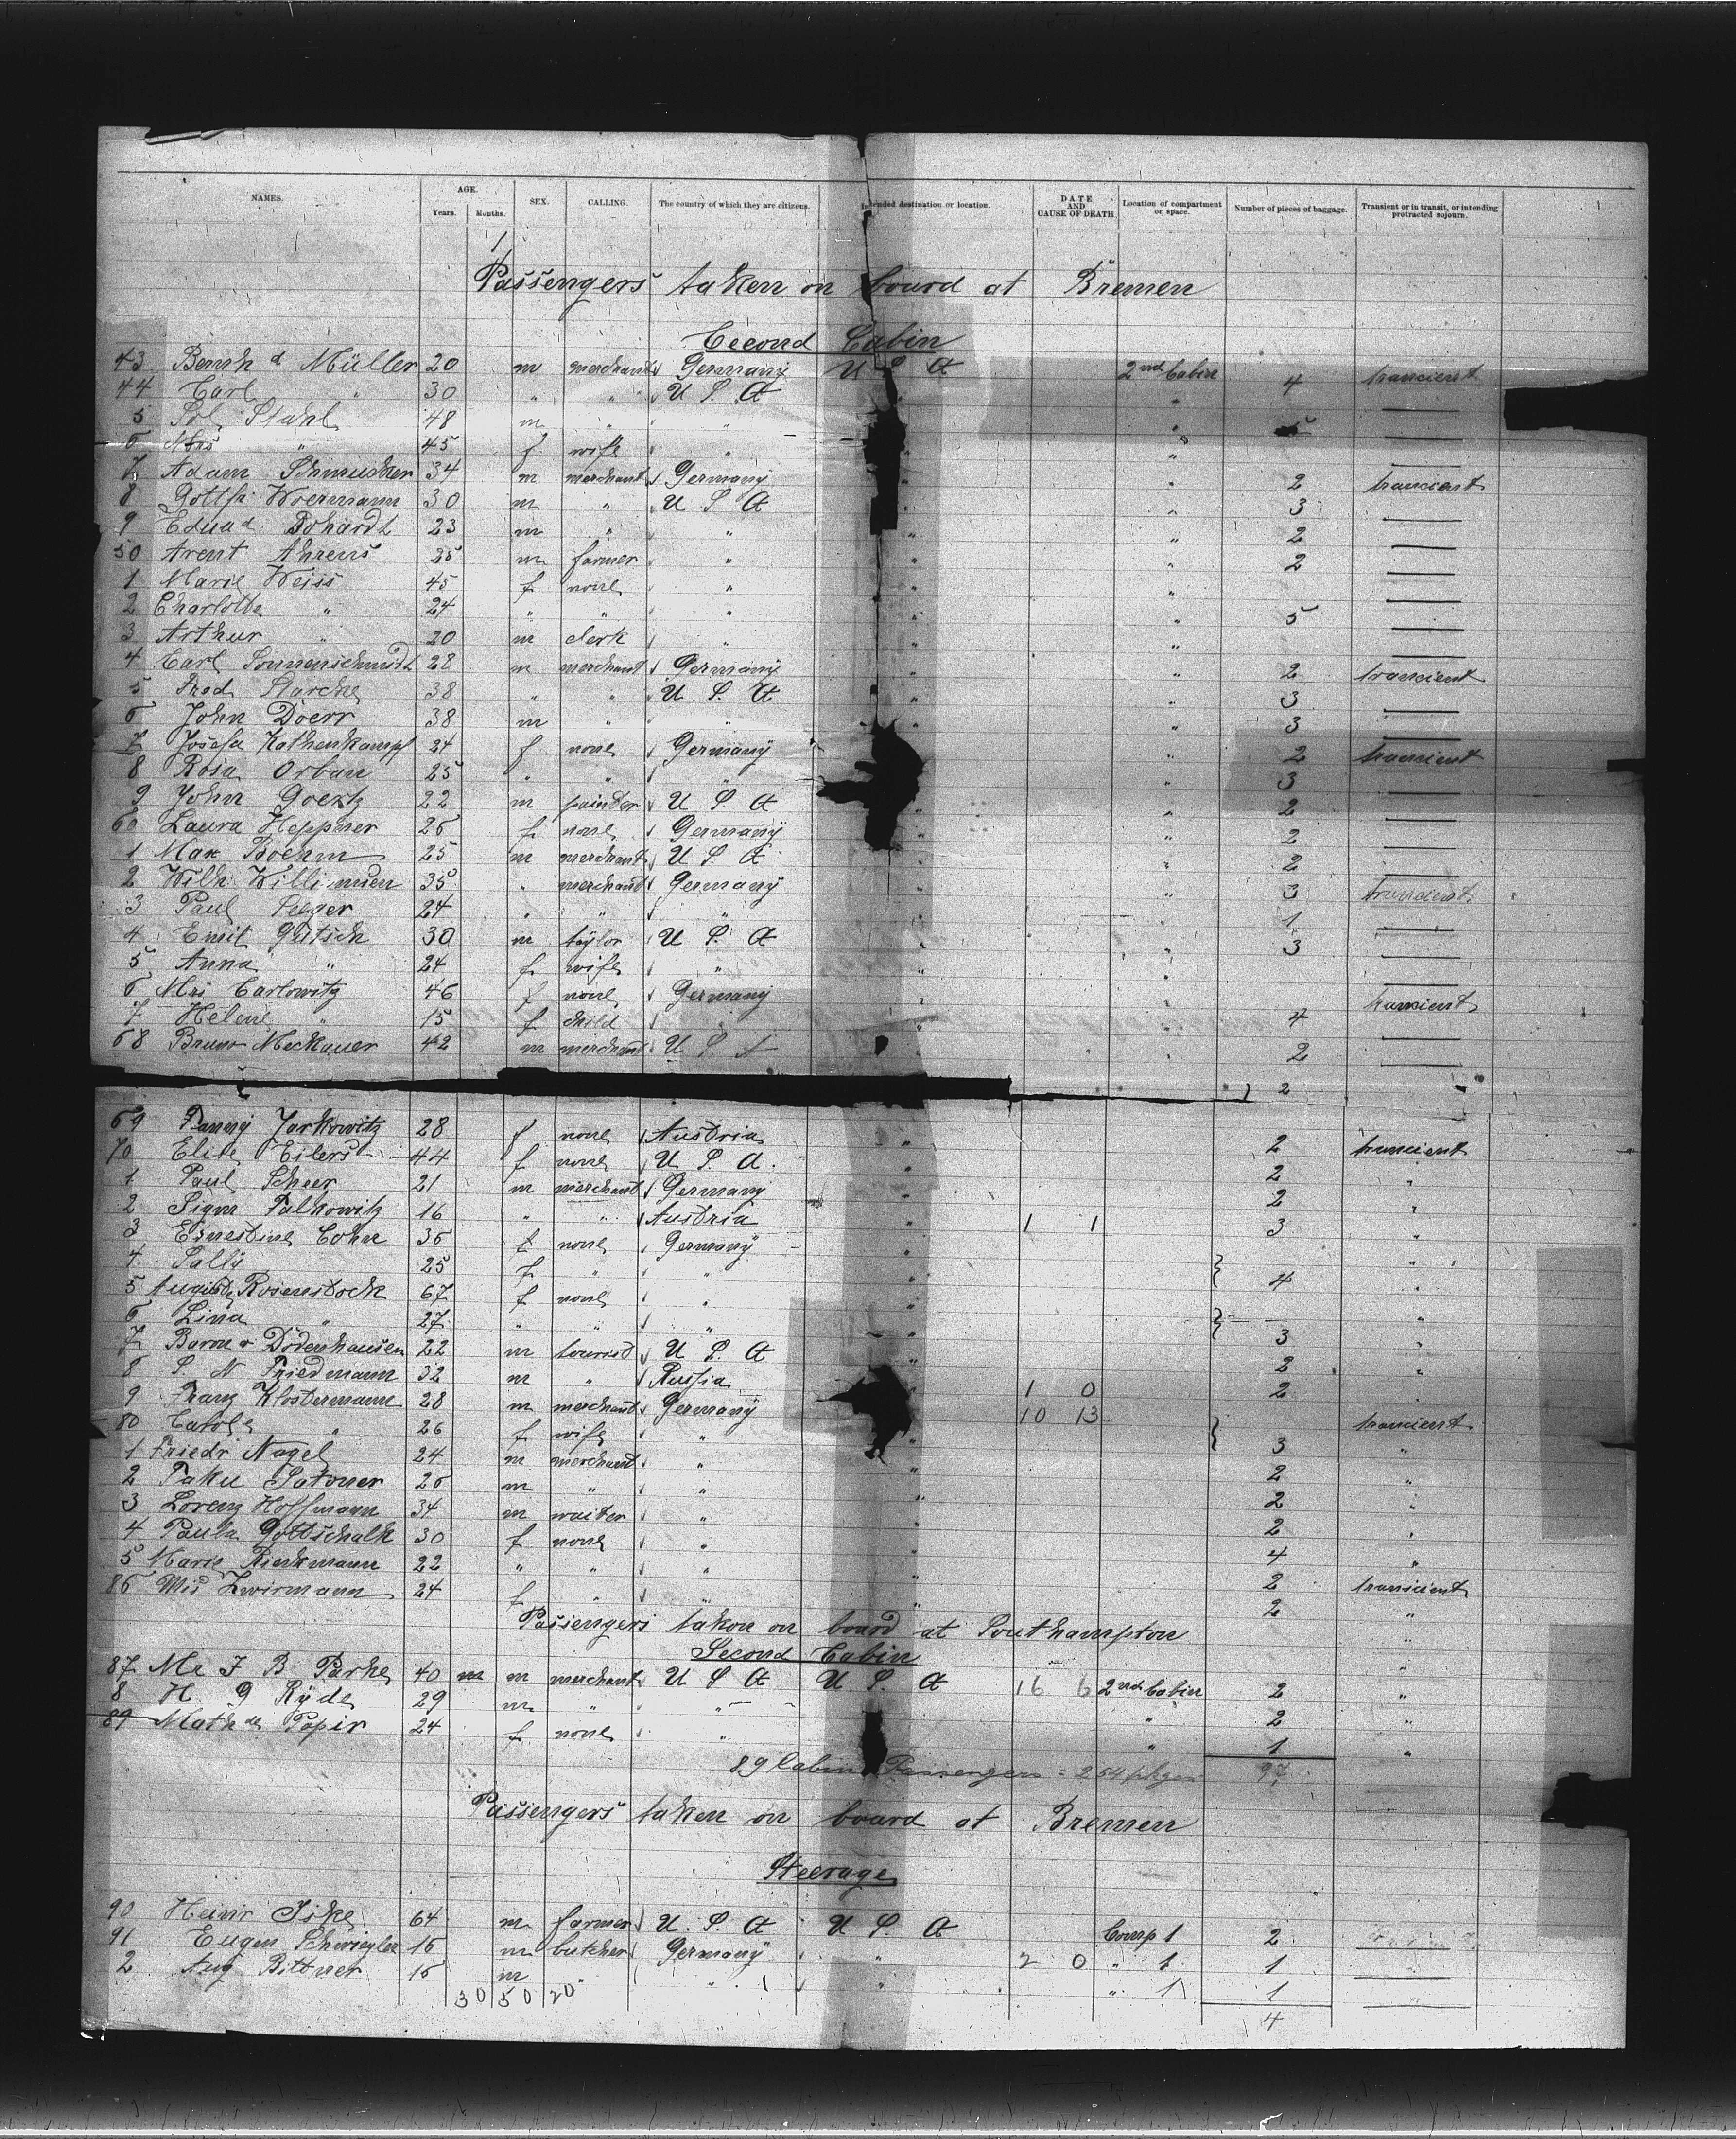 NAMES. AGE. Years. Months. SEX. CALLING. The country of which they are citizens. Intended destination or location. DATE AND CAUSE OF DEATH. Location of compartment or space. Number of pieces of baggage. Transient or in transit, or intending protracted sojourn.
Passengers taken on board at Bremen
Second Cabin
43 Bernhd Müller 20 m merchant Germany U S A 2nd Cabin 4 trancient
44 Carl " 30 " " U S A " "
5 Sol. Stahl 48 m " " " " 5
6 Mrs " 45 f wife " " "
7 Adam Schmucker 34 m merchant Germany " " 2 trancient
8 Gottfr. Woermann 30 m " U S A " " 3
9 Eduad 23 m " " " " 2
50 Arent Ahrens 25 m farmer " " " 2
1 Marie Weiss 45 f none " " "
2 Charlotte " 24 " " " " " 5
3 Arthur " 20 m clerk " " "
4 Carl Sonnenschmidt 28 m merchant Germany " " 2 trancient
5 Fred Starcke 38 " " U S A " " 3
6 John Doerr 38 m " " " " 3
7 Josefa Kathenkampf 24 f none Germany " " 2 trancient
8 Rosa Orban 25 " " " " " 3
9 John Goertz 22 m painter U S A " " 2
60 Laura Heppner 26 f none Germany " " 2
1 Max Boehm 25 m merchant U S A " " 2
2 Wilh. 35 " merchant Germany " " 3 trancient
3 Paul 24 " " " " " 1
4 Emil Gutsch 30 m taylor U S A " " 3
5 Anna " 24 f wife " " "
6 Mrs Carlowitz 46 f none Germany " " trancient
7 Helene " 15 f child " " " 4
68 Bruno Meckauer 42 m merchant U S A " 2
2
69 Fanny Jarkowitz 28 f none Austria " 2 trancient
70 Elise Eilers 44 f none U S A. " 2 "
1 Paul Scheer 21 m merchant Germany " 2 "
2 Sigm Falkowitz 16 " " Austria " 1 1 3 "
3 Ernestine Cohn 36 f none Germany "
4 Sally 25 f " " " 4 "
5 Auguste Rosenstock 67 f none " " "
6 Lina " 27 " " " " 3 "
7 Dodenhausen 22 m tourist U S A " 2 "
8 S. N Friedmann 32 m " Russia " 1 0 2 "
9 Franz Klostermann 28 m merchant Germany " 10 13 trancient
80 Carole " 26 f wife " " 3 "
1 Friedr Nagel 24 m merchant " " 2 "
2 26 m " " " 2 "
3 Lorenz Hoffmann 34 m waiter " " 2 "
4 Paula Gottschalk 30 f none " " 4 "
5 Marie Rinkmann 22 " " " " 2 trancient
86 Mis Zwirmann 24 f " " " 2 "
Passengers taken on board at Southampton
Second Cabin
87 Mr F B Parke 40 m m merchant U S A U S A 16 6 2nd Cabin 2 "
8 H. G Ryde 29 m " " " 2 "
89 Mathde Popir 24 f none " " 1 "
89 Cabin Passengers = 254 pkgs 97
Passengers taken on board at Bremen
Steerage
90 Heinr Iske 64 m farmer U. S. A U S. A Comp 1 2
91 Eugen 16 m butcher Germany " 2 0 " 1 1
2 Aug Bittner 16 m " " " " 1 1
30 50 20 4